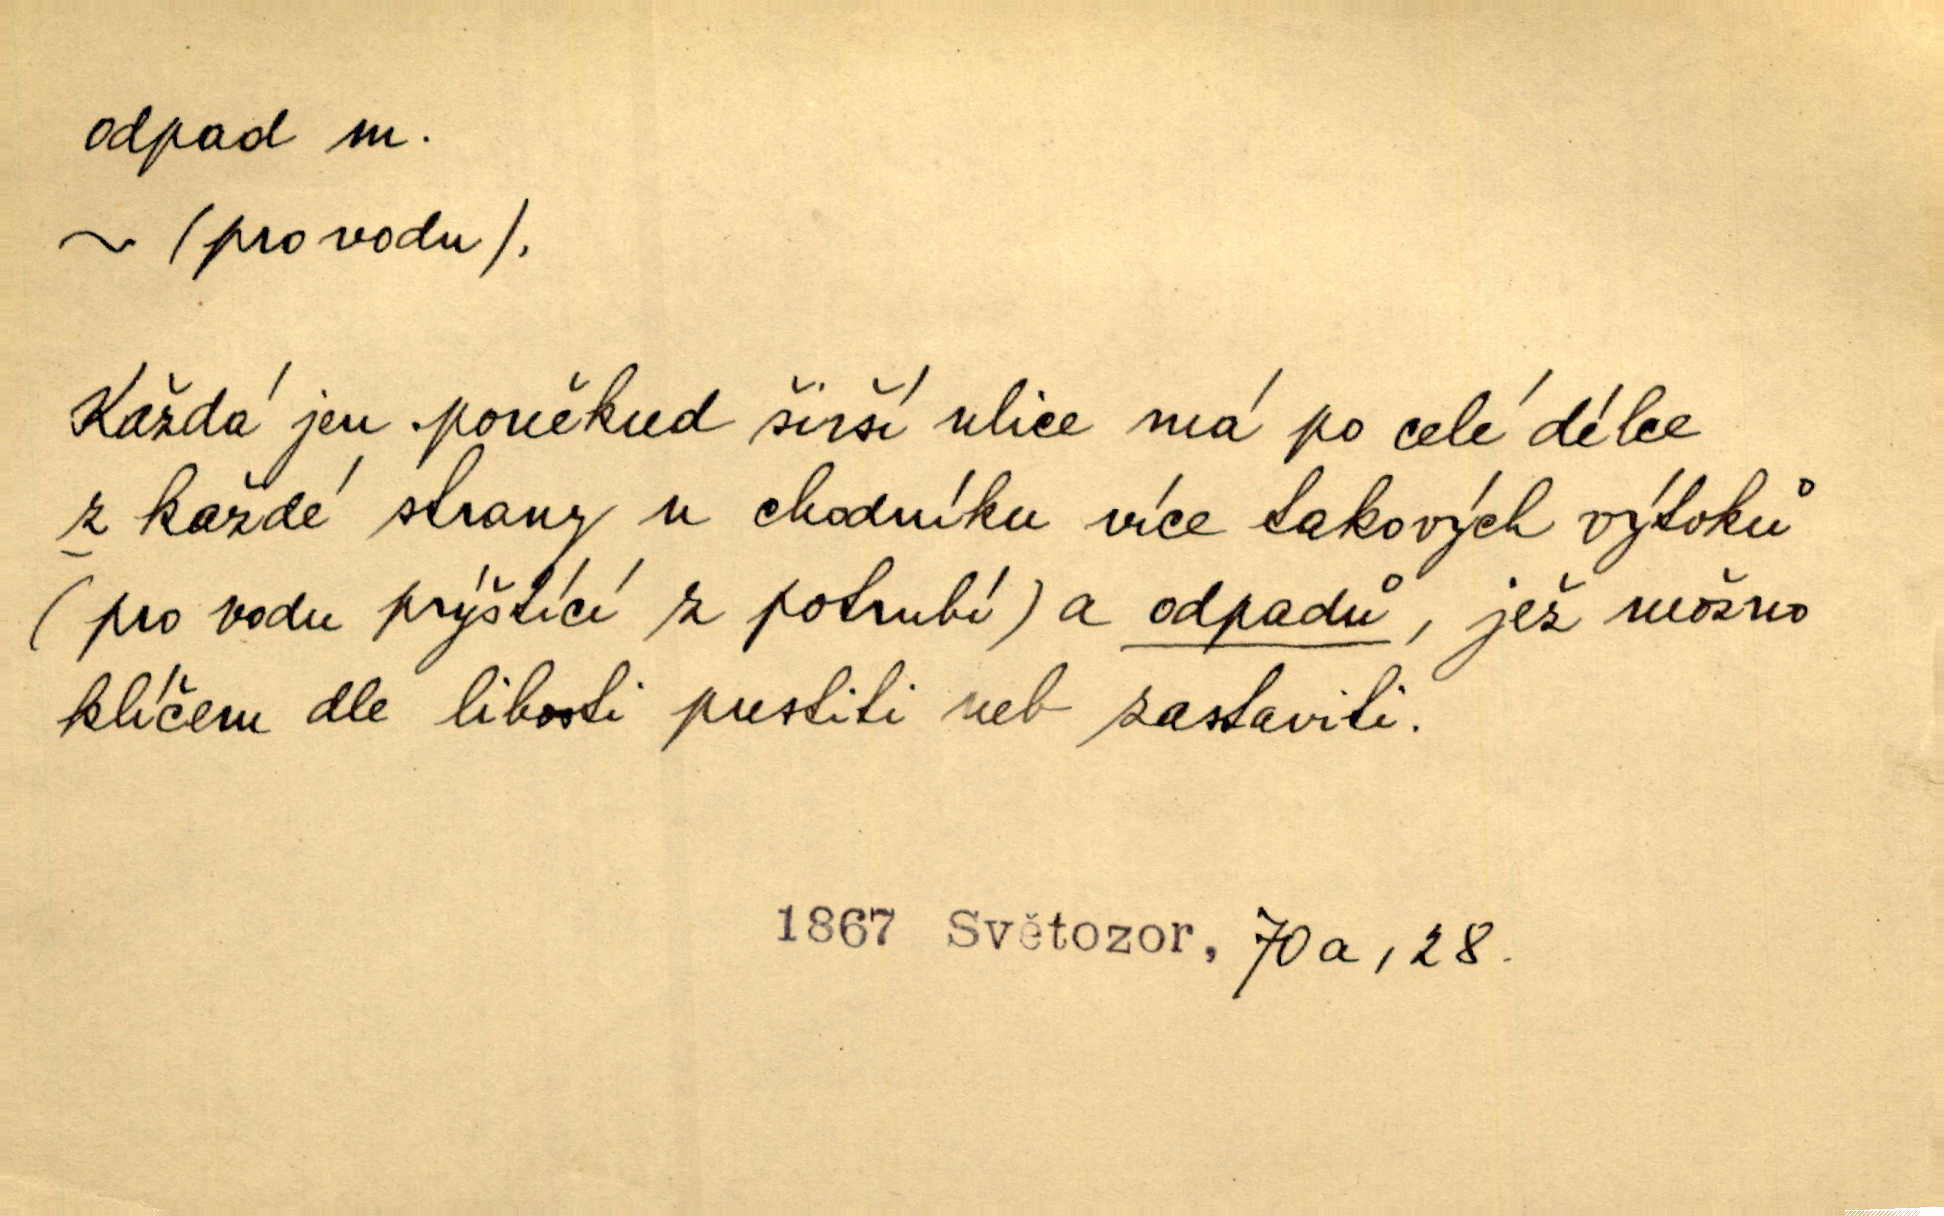 odpad m.
~ (pro vodu).
Každá jen poněkud širší ulice má po celé délce
z každé strany u chodníku více takových výtoků
(pro vodu prýštící z potrubí) a odpadů, jež možno
klíčem dle libosti pustiti neb zastaviti.
1867 Světozor, 70a, 28.